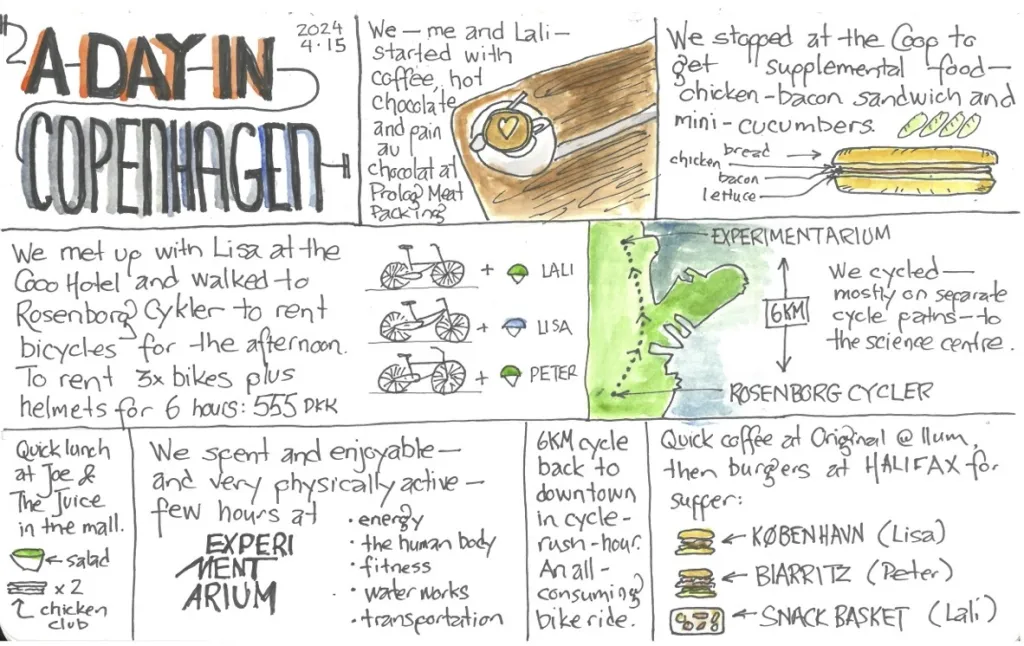 A DAY IN
COPENHAGEN
2024
4.15
We — me and Lali —
started with
coffee, hot
chocolate
and pain
au
chocolat at
Prolog Meat
Packing
We stopped at the Coop to
get supplemental food —
chicken-bacon sandwich and
mini-cucumbers.
bread
chicken
bacon
lettuce
We met up with Lisa at the
Coco Hotel and walked to
Rosenborg Cykler to rent
bicycles for the afternoon.
To rent 3x bikes plus
helmets for 6 hours: 555 DKK
+ LALI
+ LISA
+ PETER
EXPERIMENTARIUM
6KM
ROSENBORG CYCLER
We cycled —
mostly on separate
cycle paths — to
the science centre.
Quick lunch
at Joe &
The Juice
in the mall.
salad
x 2
chicken
club
We spent and enjoyable —
and very physically active —
few hours at
EXPERI
MENT
ARIUM
• energy
• the human body
• fitness
• water works
• transportation
6KM cycle
back to
downtown
in cycle-
rush-hour.
An all-
consuming
bike ride.
Quick coffee at Original @ Ilum,
then burgers at HALIFAX for
supper:
KØBENHAVN (Lisa)
BIARRITZ (Peter)
SNACK BASKET (Lali)